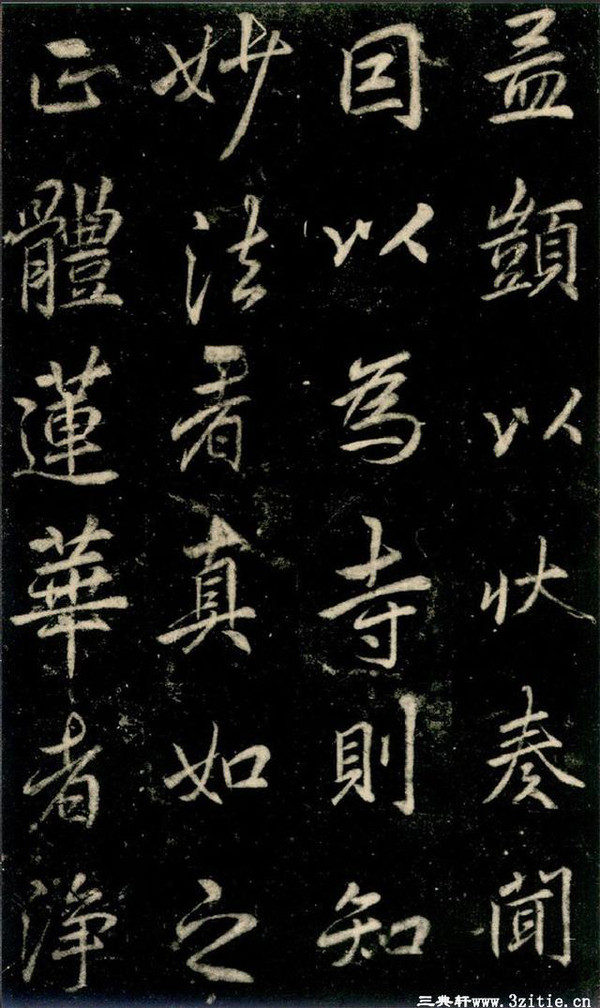 孟顗以狀奏聞
因以為寺則知
妙法者真如之
正體蓮華者淨
三典轩www.3zitie.cn